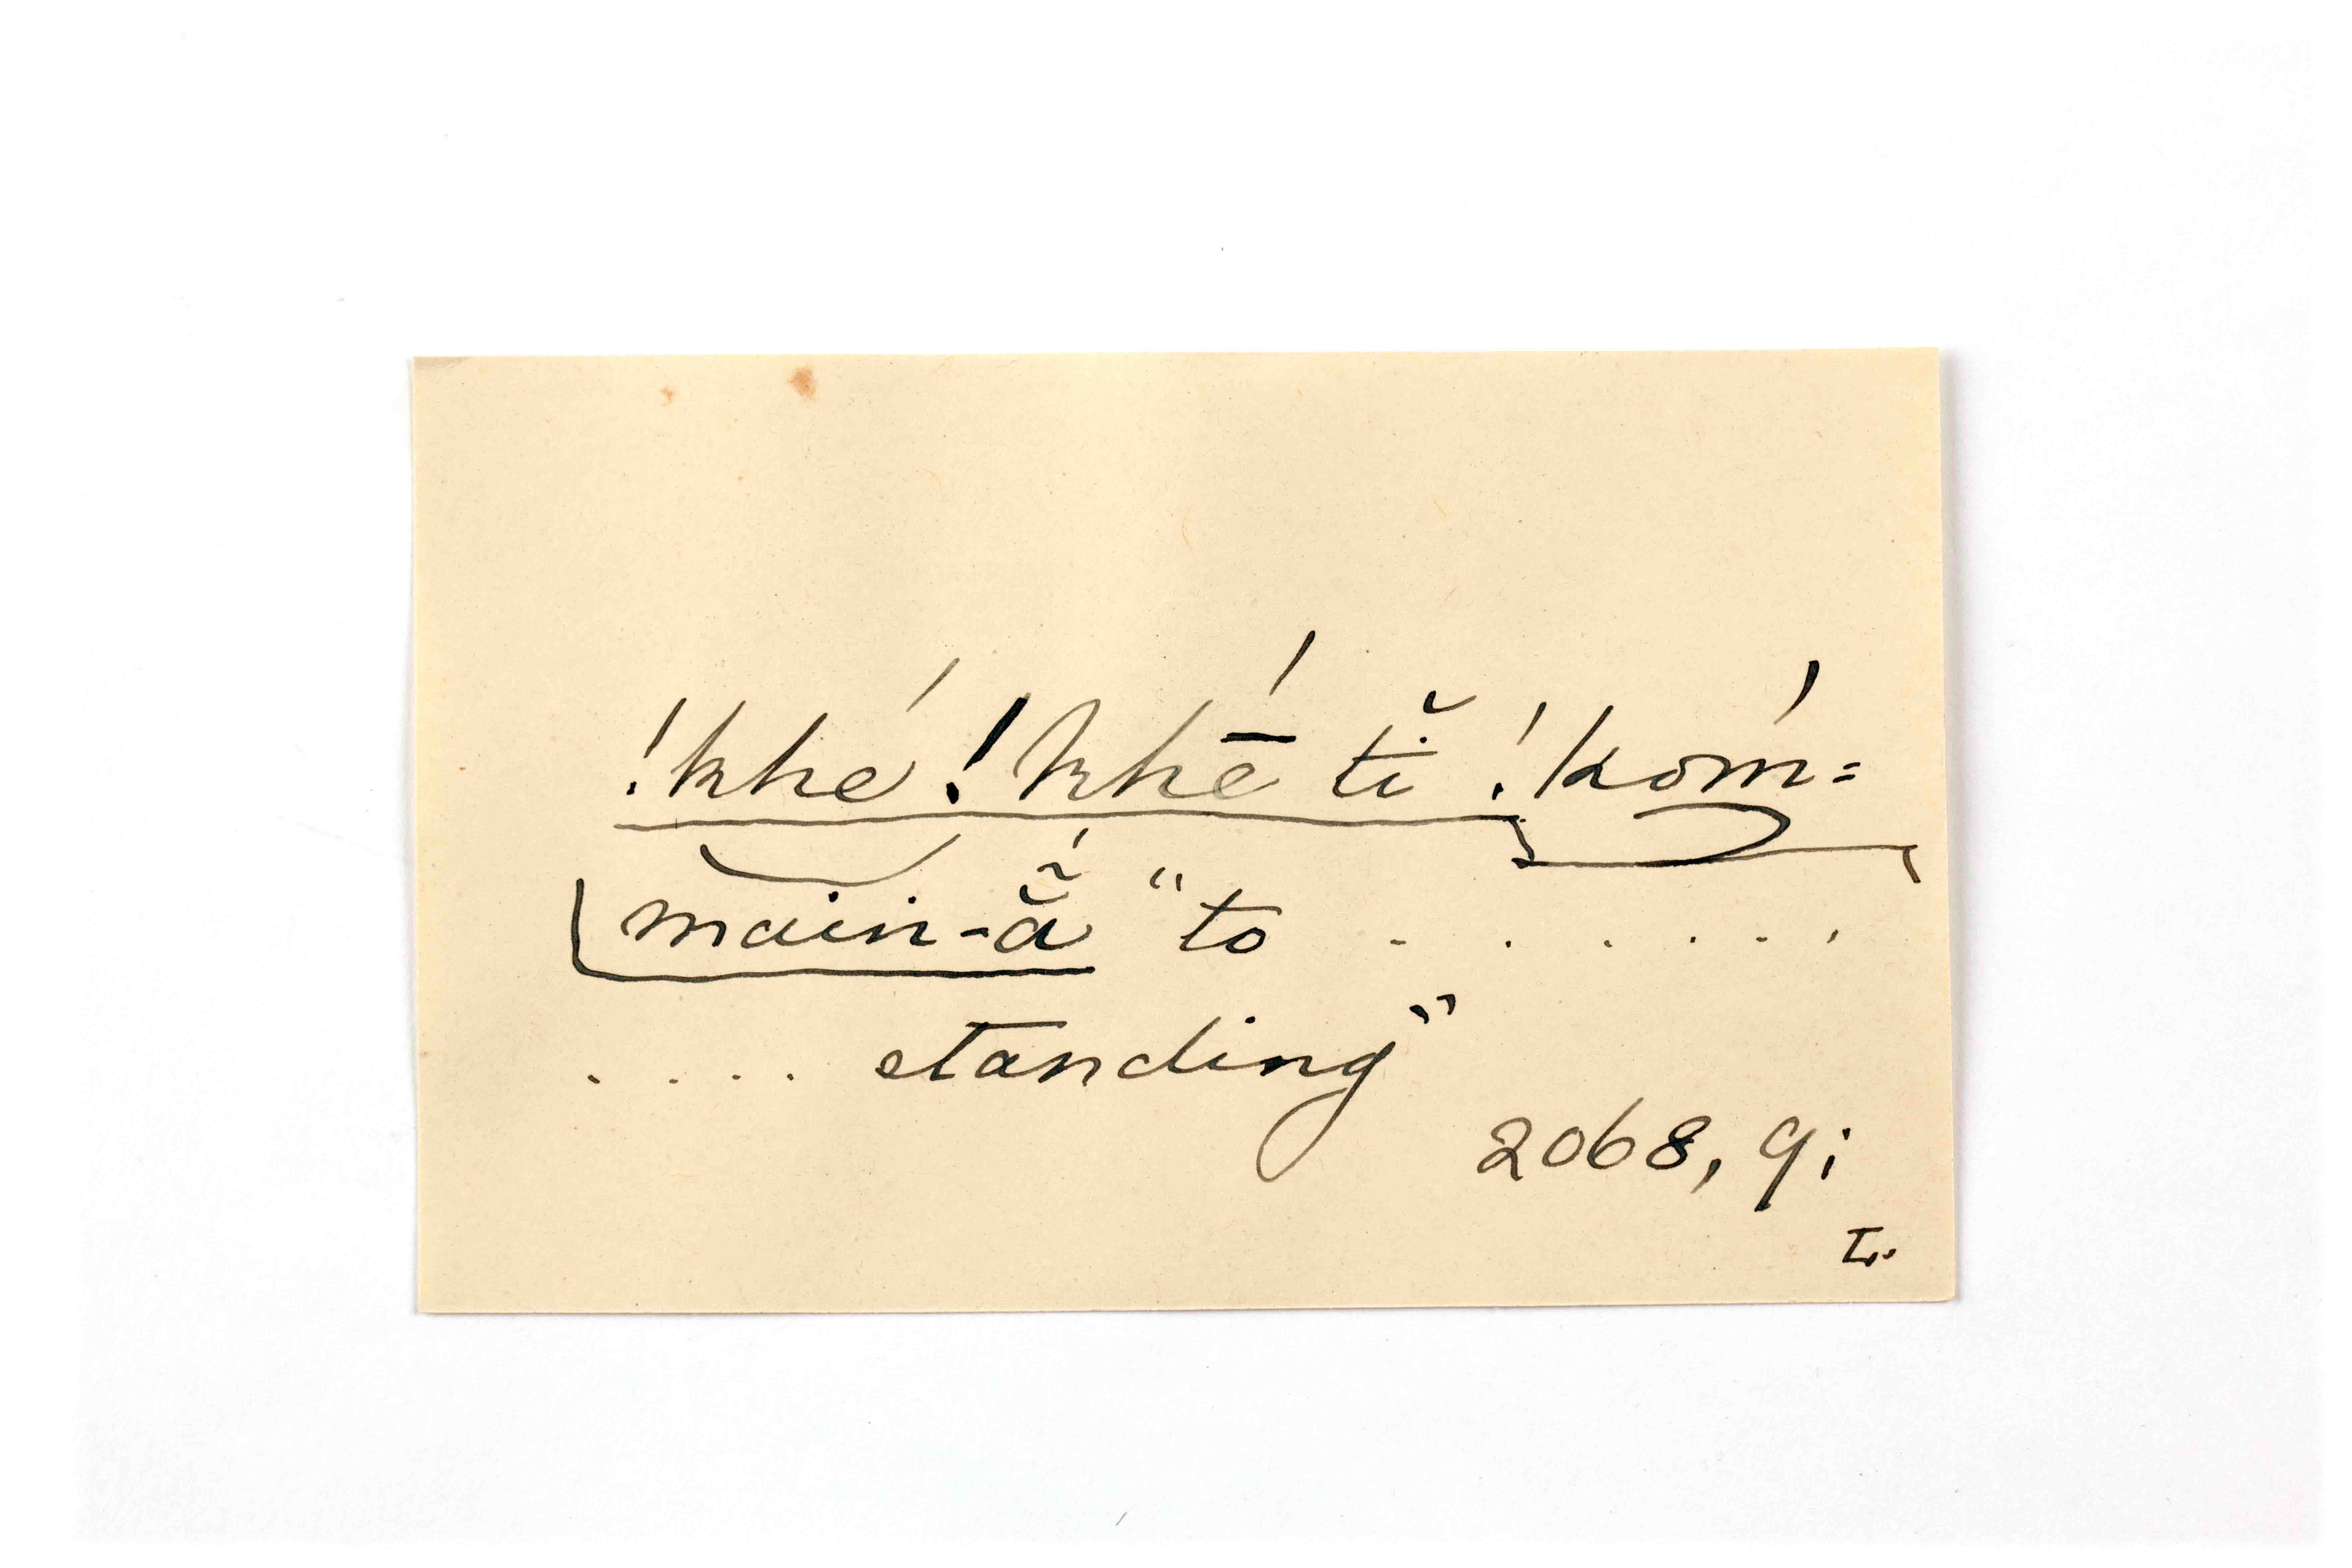 !khé !khḗ tĭ !kóm=
main-ã̆́ "to . . . . . . .
. . . . standing"
2068, 9;
L.